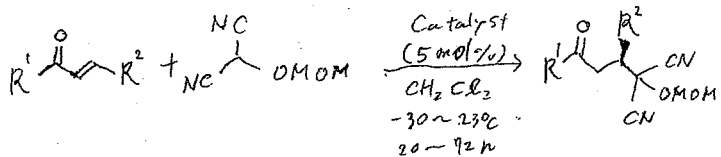 R¹ O R² + NC NC OMOM
Catalyst
(5 mol%)
CH₂Cl₂
-30~23°C
20~72h
R¹ O R² CN OMOM CN